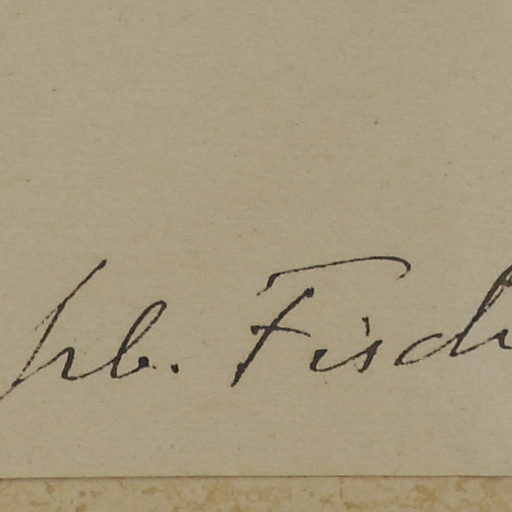 hb. Fisch